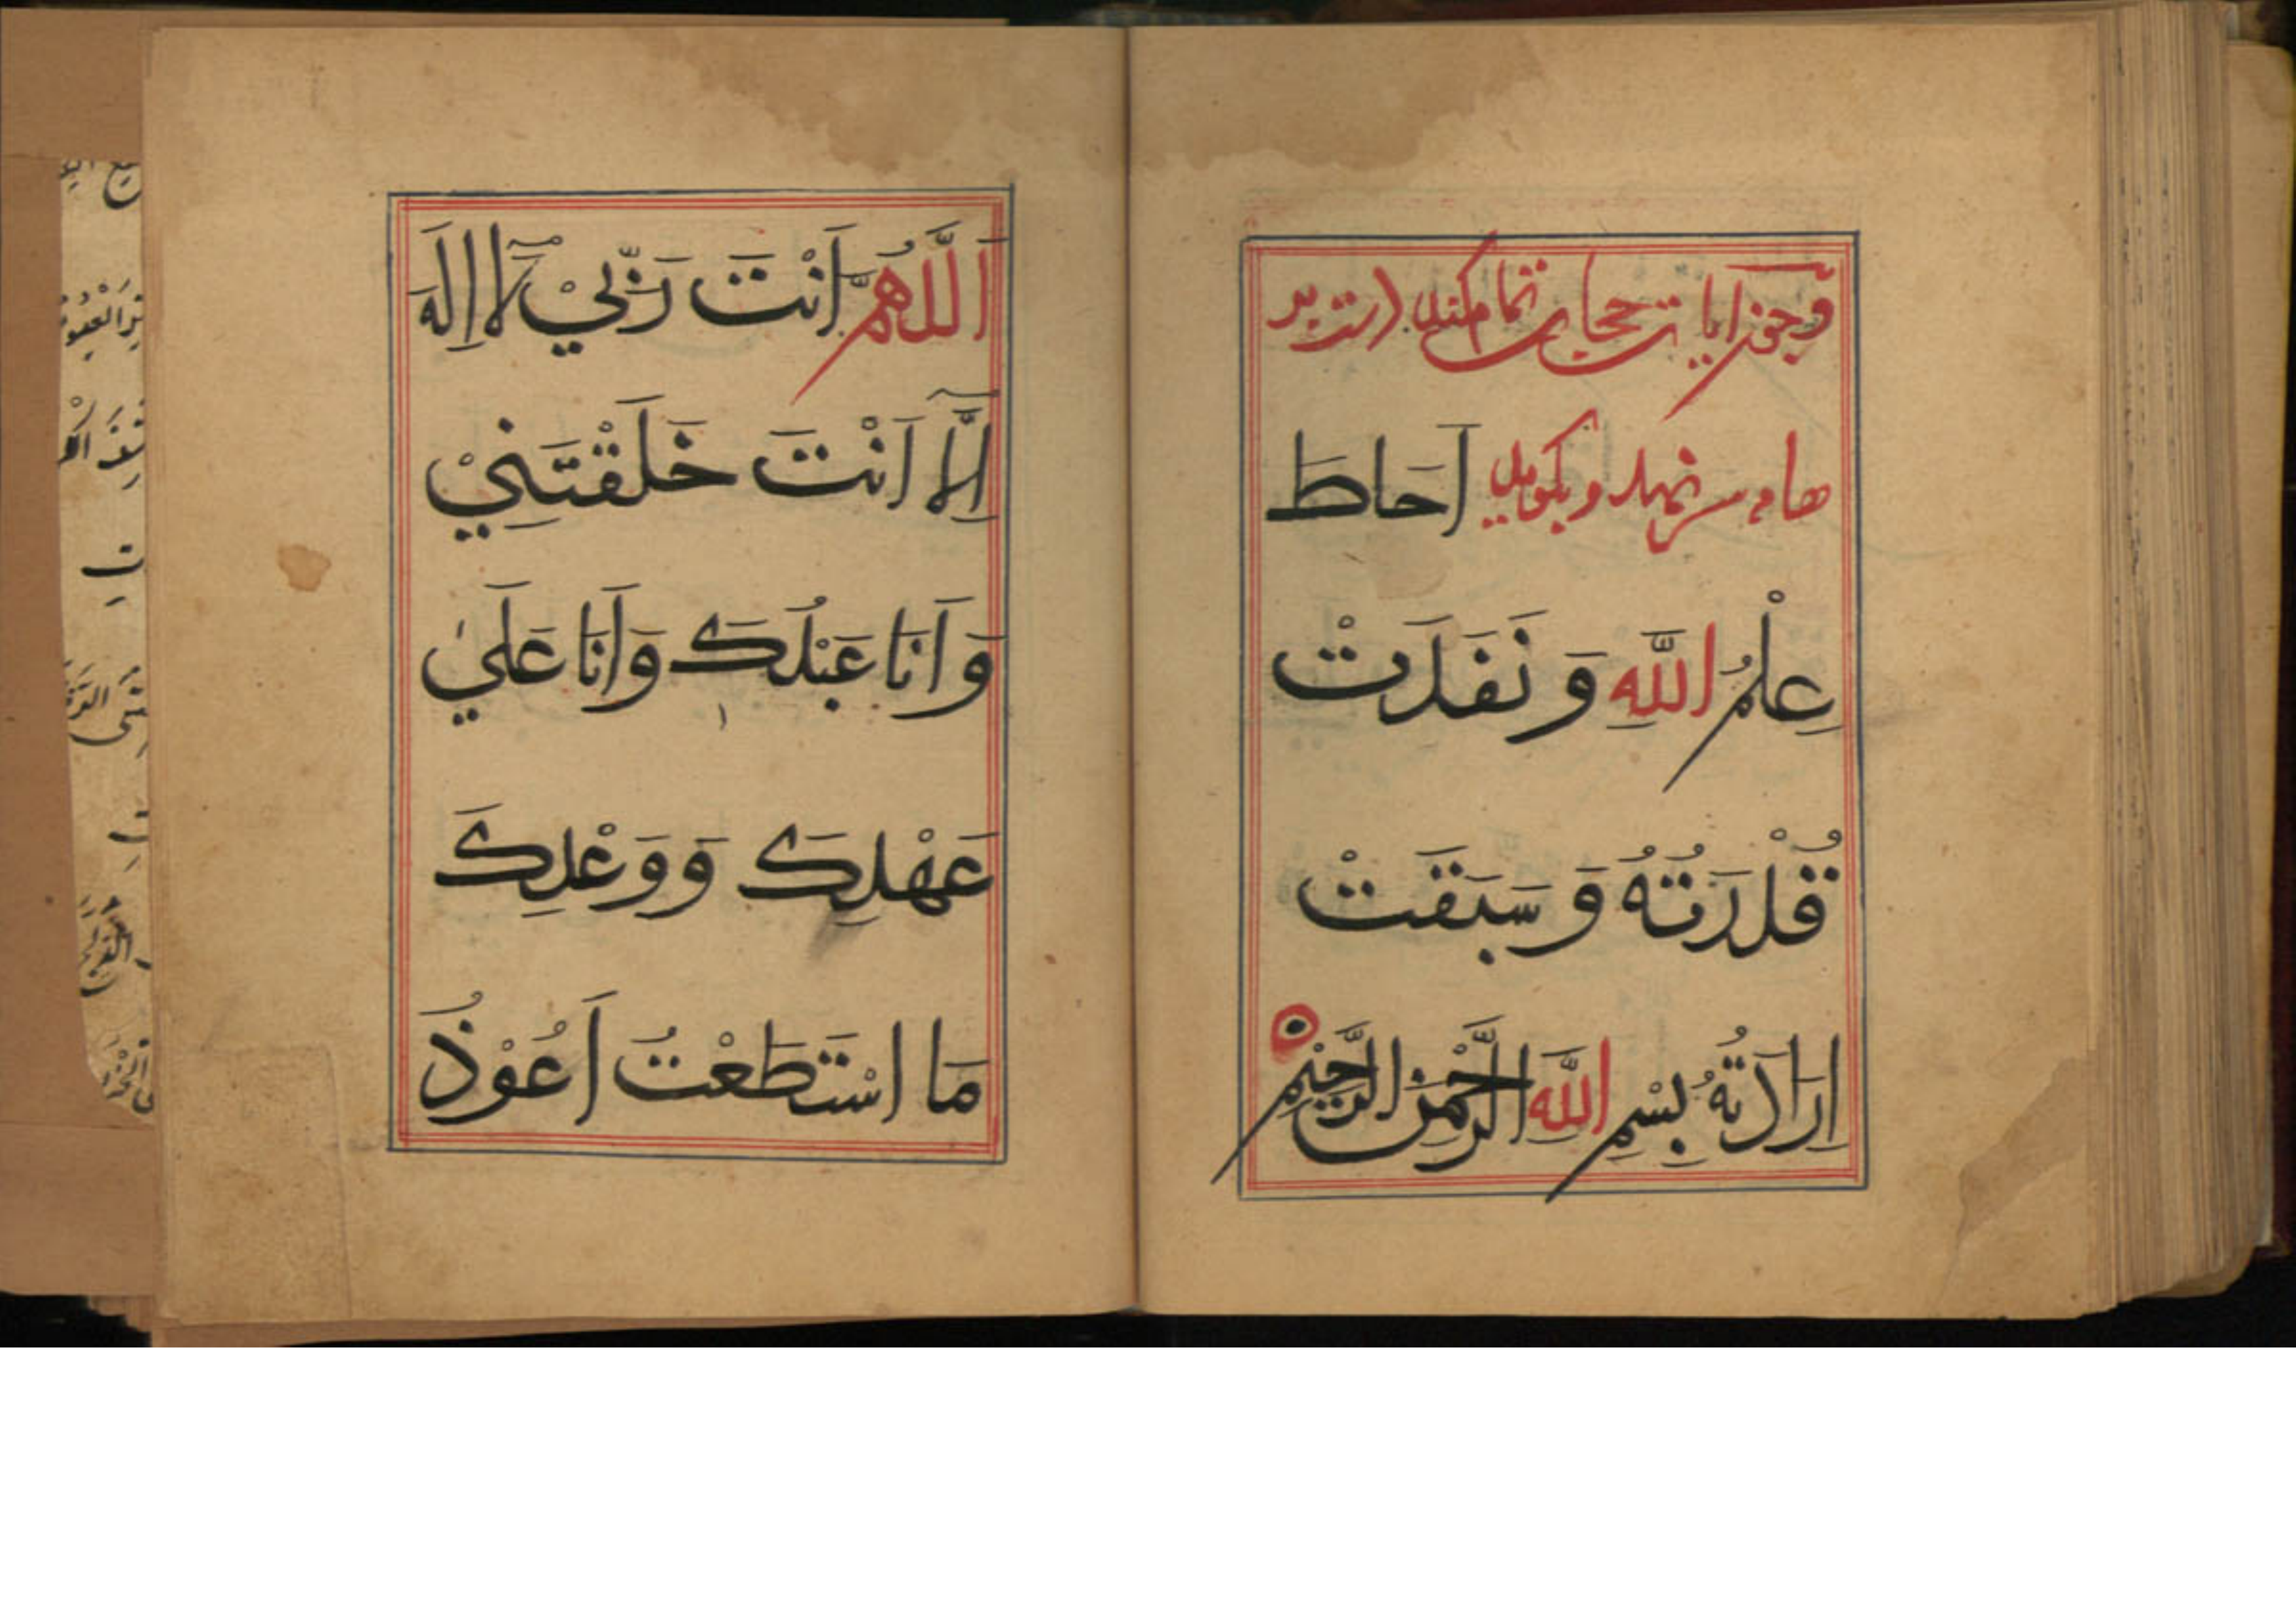 و چون آیات حجاب تمام کند دست بر
سر نهد و بگوید اَحَاطَ
عِلْمُ اللّٰهِ وَ نَفَدَتْ
قُدْرَتُهُ وَ سَبَقَتْ
اِرَادَتُهُ بِسْمِ اللّٰهِ الرَّحْمٰنِ الرَّحِيْمِ
اَللّٰهُمَّ اَنْتَ رَبِّيْ لَآ اِلٰهَ
اِلَّآ اَنْتَ خَلَقْتَنِيْ
وَ اَنَا عَبْدُكَ وَ اَنَا عَلٰي
عَهْدِكَ وَ وَعْدِكَ
مَا اسْتَطَعْتُ اَعُوْذُ